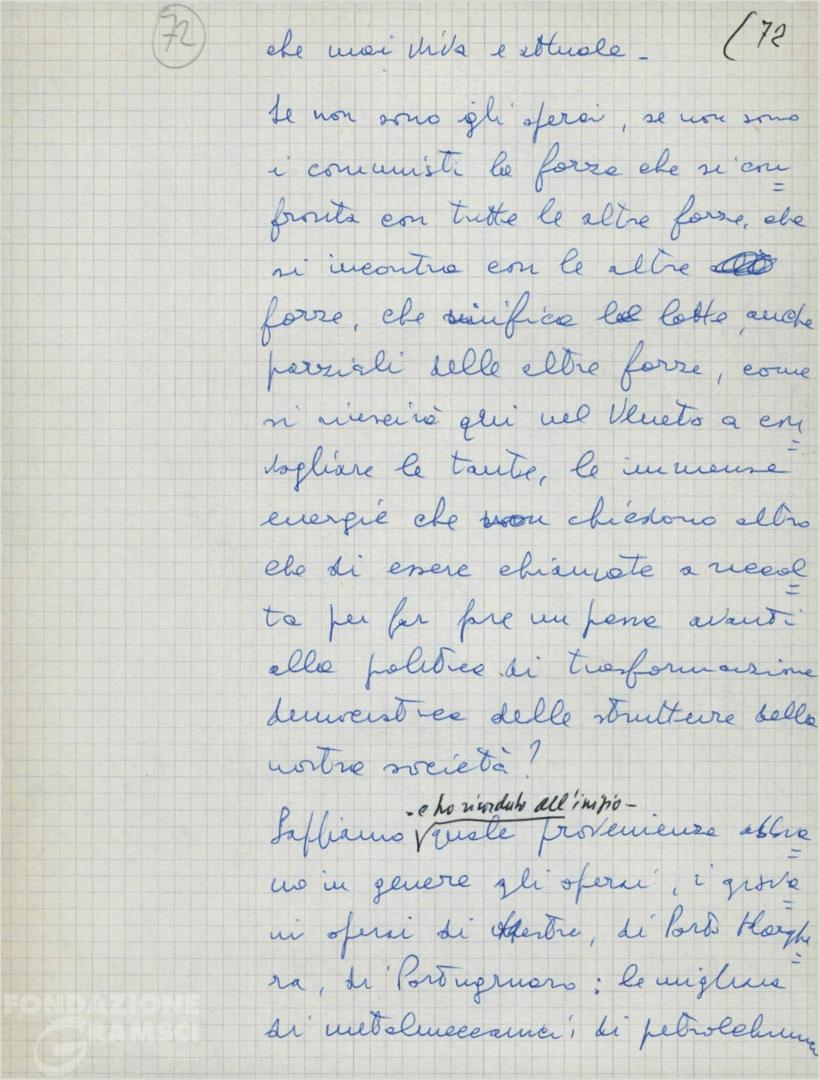 72
(72
che mai viva e attuale -
Se non sono gli operai, se non sono
i comunisti la forza che si con=
fronta con tutte le altre forze, che
si incontra con le altre
forze, che unifica le lotte, anche
parziali delle altre forze, come
si riuscirà qui nel Veneto a con=
vogliare le tante, le immense
energie che non chiedono altro
che di essere chiamate a raccol=
ta per far fare un passo avanti
alla politica di trasformazione
democratica delle strutture della
nostra società?
- e ho ricordato all'inizio -
Sappiamo quale provenienza abbia=
no in genere gli operai, i giova=
ni operai di Mestre, di Porto Marghe=
ra, di Portogruaro; le migliaia
di metalmeccanici, di petrolchimici
FONDAZIONE
GRAMSCI